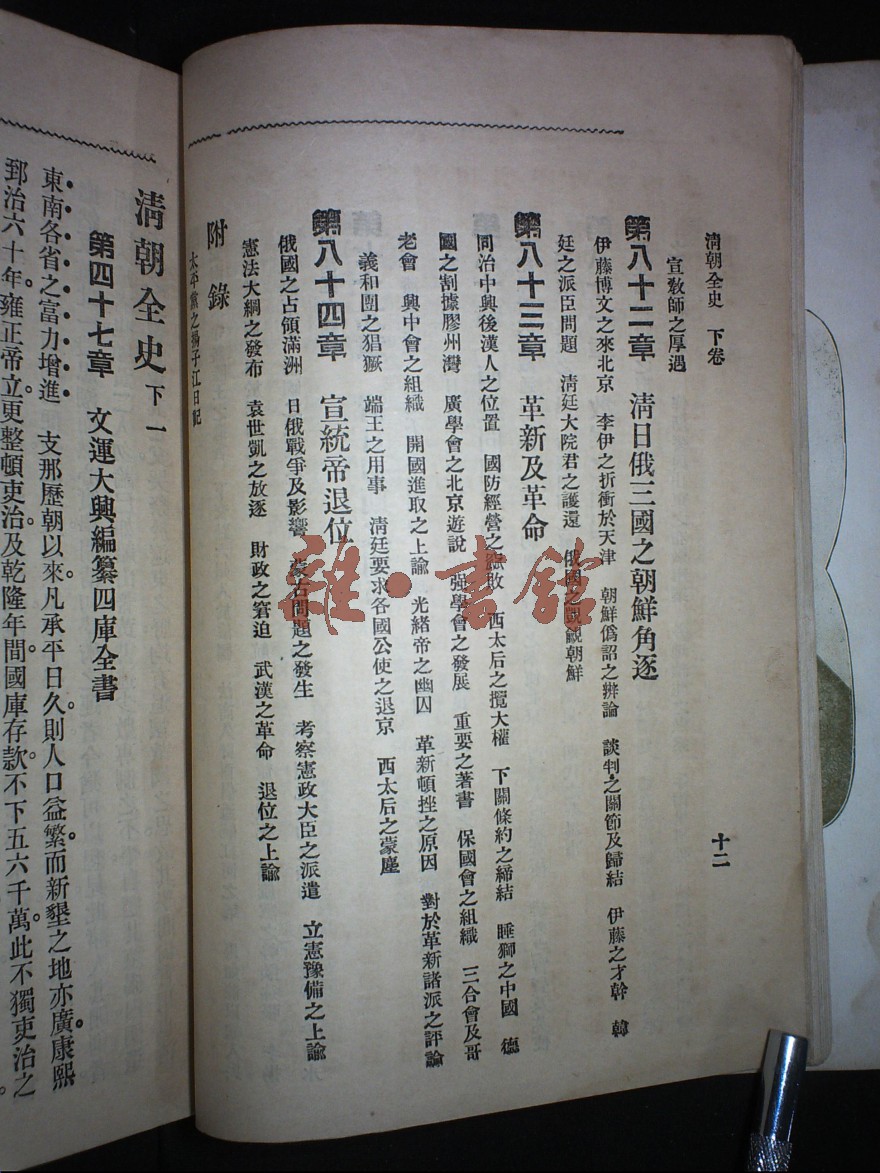 清朝全史 下卷
十二
宣教師之厚遇
第八十二章 淸日俄三國之朝鮮角逐
伊藤博文之來北京 李伊之折衝於天津 朝鮮僞詔之辨論 談判之關節及歸結 伊藤之才幹 韓
廷之派臣問題 淸廷大院君之護還 俄國之覬覦朝鮮
第八十三章 革新及革命
同治中興後漢人之位置 國防經營之腐敗 西太后之攬大權 下關條約之締結 睡獅之中國 德
國之割據膠州灣 廣學會之北京遊說 强學會之發展 重要之著書 保國會之組織 三合會及哥
老會 興中會之組織 開國進取之上諭 光緒帝之幽囚 革新頓挫之原因 對於革新諸派之評論
義和團之猖獗 端王之用事 淸廷要求各國公使之退京 西太后之蒙塵
第八十四章 宣統帝退位
俄國之占領滿洲 日俄戰爭及影響 蒙古問題之發生 考察憲政大臣之派遣 立憲豫備之上諭
憲法大綱之發布 袁世凱之放逐 財政之窘迫 武漢之革命 退位之上諭
附錄
太平黨之揚子江日記
淸朝全史 下一
第四十七章 文運大興編纂四庫全書
東南各省之富力增進 支那歷朝以來。凡承平日久。則人口益繁。而新墾之地亦廣。康熙
郅治六十年。雍正帝立。更整頓吏治。及乾隆年間。國庫存款。不下五六千萬。此不獨吏治之
雜·書館